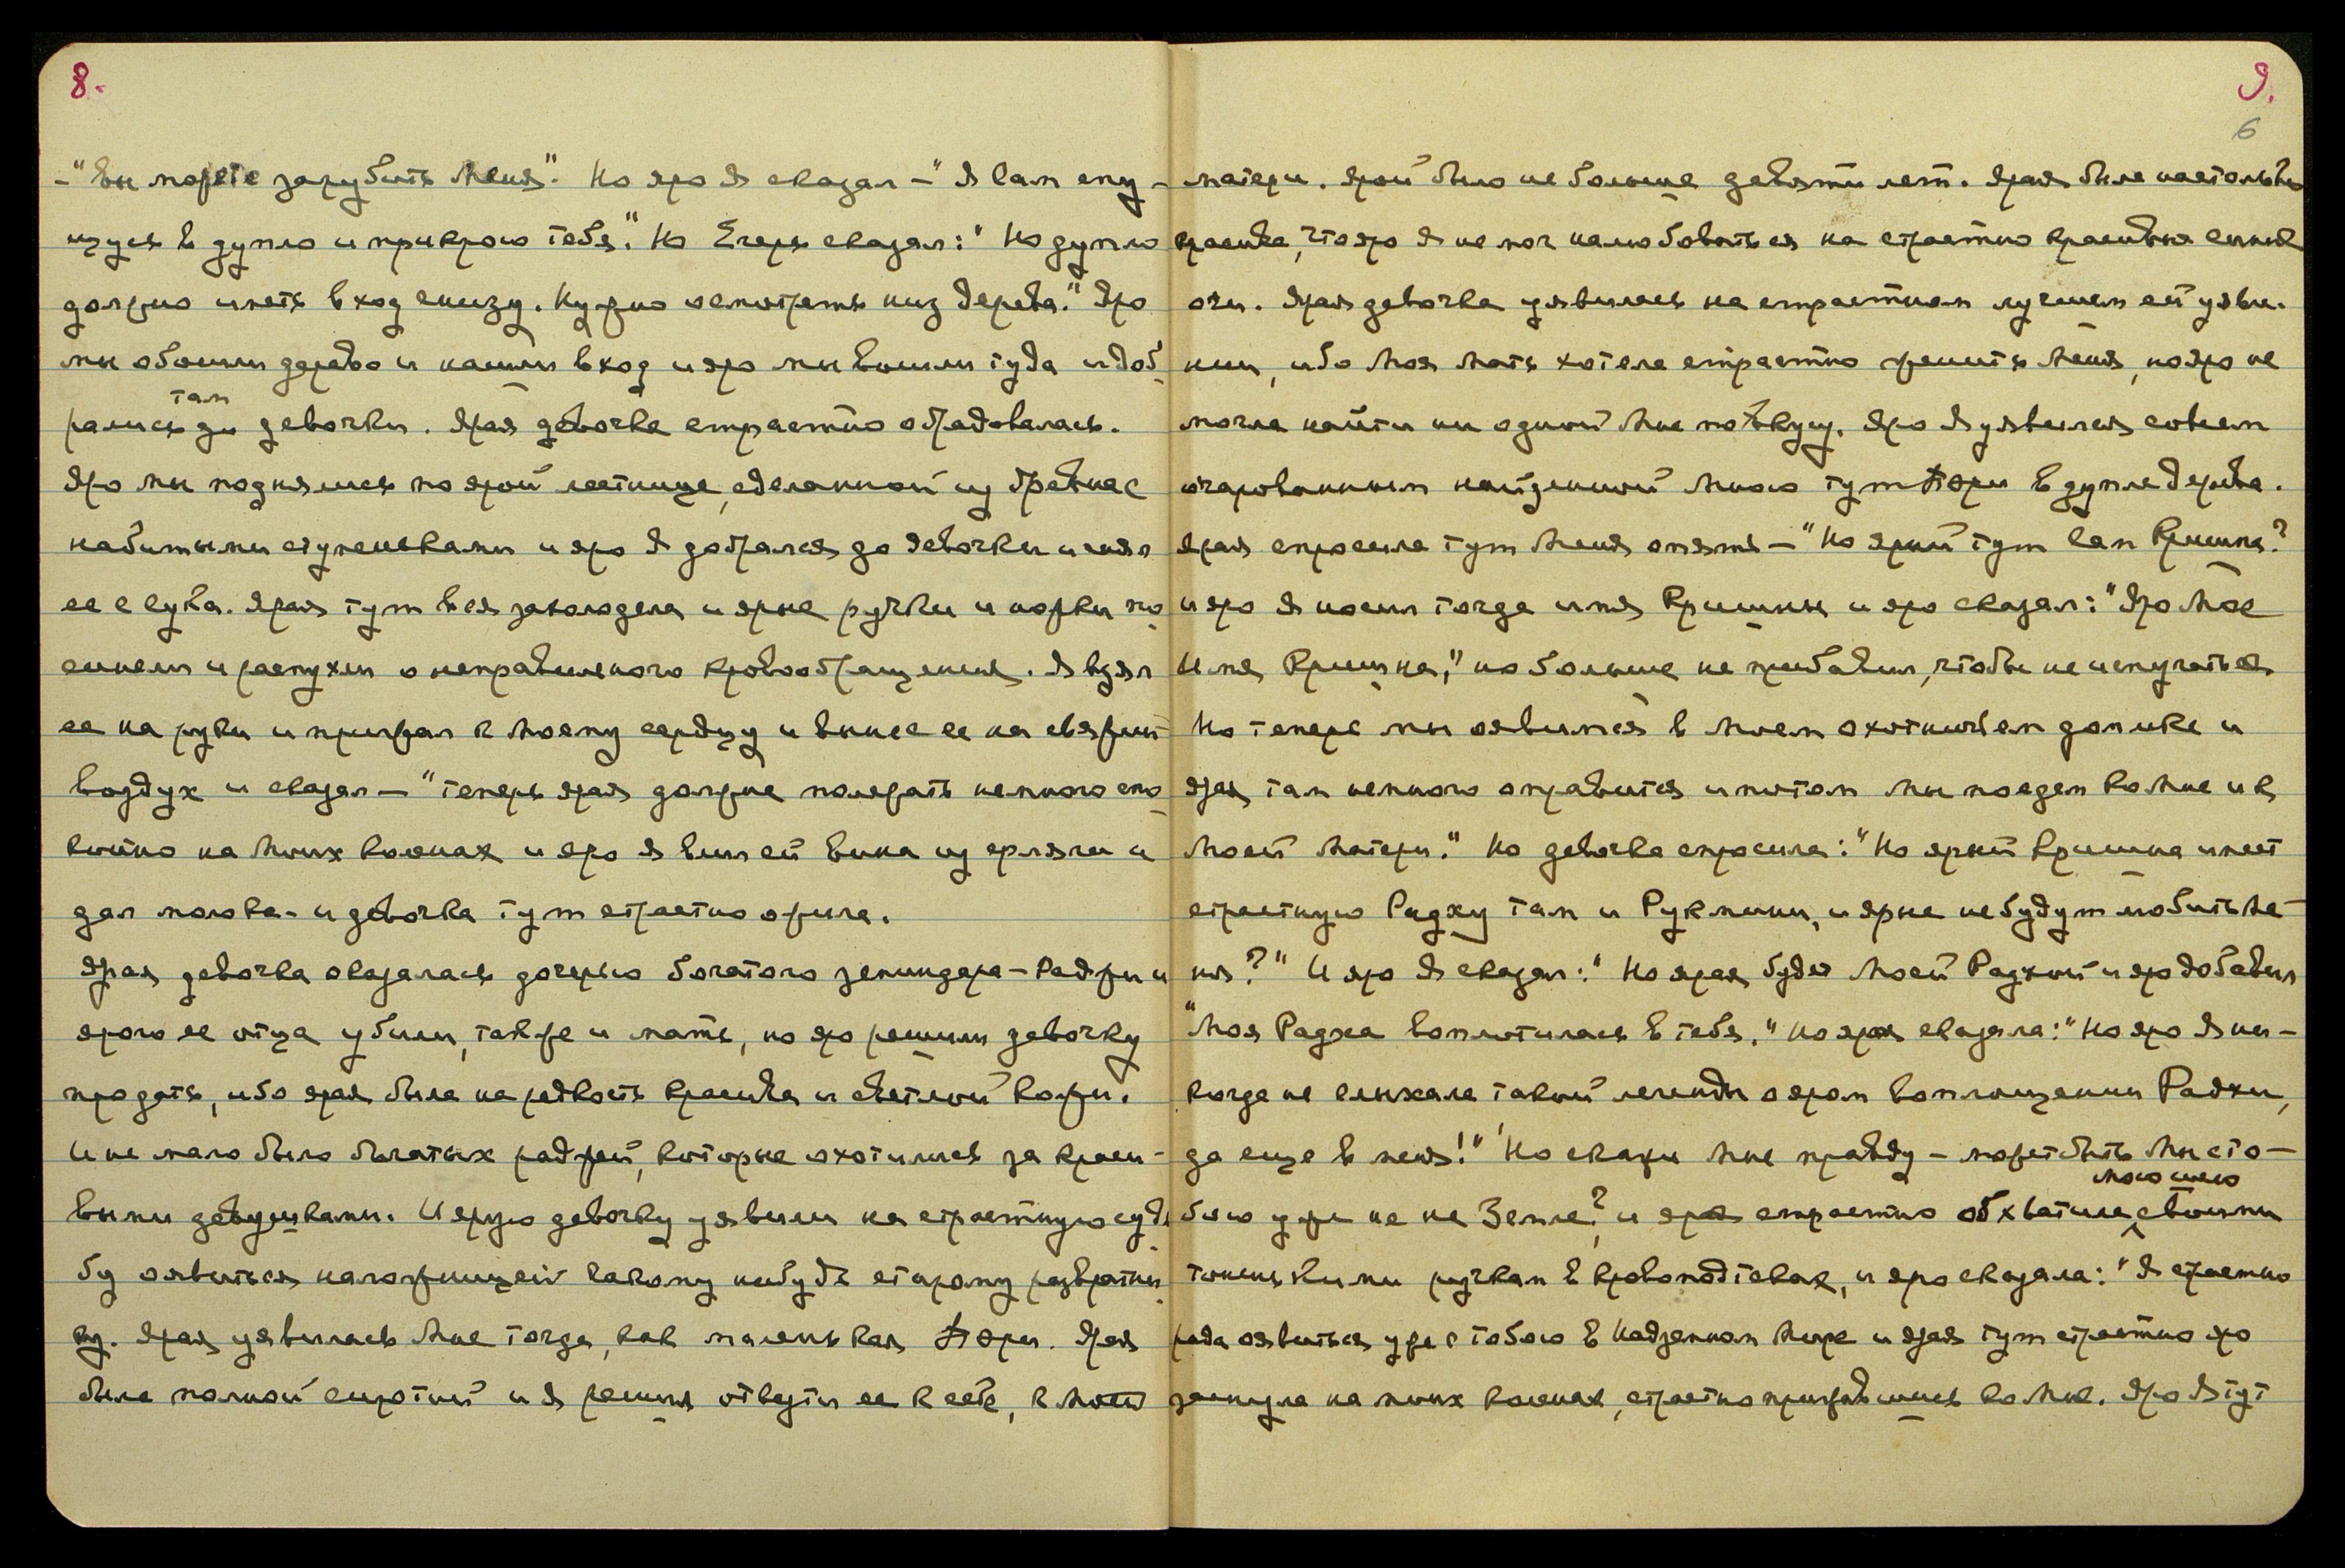 8.
–"Вы можете зарубить Меня". Но яро Я сказал – "Я сам спу-
щусь в дупло и прикрою тебя." Но Егерь сказал: "Но дупло
должно иметь вход снизу. Нужно осмотреть низ дерева." Яро
мы обошли дерево и нашли вход и яро мы вошли туда и доб-
рались там до девочки. Ярая девочка страстно обрадовалась.
Яро мы поднялись по ярой лестнице, сделанной из бревна с
набитыми ступеньками и яро Я добрался до девочки и снял
ее с сука. Ярая тут вся захолодела и ярые ручки и ножки по-
синели и распухли о неправильного кровообращения. Я взял
ее на руки и прижал к Моему сердцу и вынес ее на свяжий
воздух и сказал – "теперь ярая должна полежать немного спо-
койно на Моих коленах и яро Я влил ей вина из фляги и
дал молока – и девочка тут страстно ожила.
Ярая девочка оказалась дочерью богатого земиндара – Раджи и
ярого ее отца убили, также и мать, но яро решили девочку
продать, ибо ярая была на редкость красива и светлой кожи.
И не мало было богатых раджей, которые охотились за краси-
выми девушками. И ярую девочку уявили на страстную судь-
бу оявиться наложницей какому нибудь старому развратни-
ку. Ярая уявилась Мне тогда, как маленькая Пери. Ярая
была полной сиротой и Я решил отвезти ее к себе, к Моей
9.
6
матери. Ярой было не больше девяти лет. Ярая была настолько
красива, что яро Я не мог налюбоваться на страстно красивые синие
очи. Ярая девочка уявилась на страстном лучшем ей уявле-
нии, ибо Моя Мать хотела страстно женить Меня, но яро не
могла найти ни одной Мне по вкусу. Яро Я уявился совсем
очарованным найденной Мною тут Пери в дупле дерева.
Ярая спросила тут Меня опять – "Но ярый тут сам Кришна?
и яро Я носил тогда имя Кришны и яро сказал: "Яро Мое
Имя Кришна," но больше не прибавил, чтобы не испугаться
Но теперь мы оявимся в Моем охотничьем домике и
ярая там немного оправится и потом мы поедем ко Мне и к
Моей Матери." Но девочка спросила: "Но ярый Кришна имеет
страстную Радху там и Рукмини, и ярые не будут любить ме-
ня?" И яро Я сказал: "Но ярая будь Моей Радхой и яро добавил
"Моя Радха воплотилась в тебя." Но ярая сказала: "Но яро Я ни-
когда не слыхала такой легенды о яром воплощении Радхи,
да еще в меня!" Но скажи Мне правду – может быть Мы с то-
бою уже не на Земле? и ярая страстно обхватила мою шею своими
тоненькими ручкам в кровоподтеках, и яро сказала: "Я страстно
рада оявиться уже с тобою в Надземном Мире и ярая тут страстно яро
заснула на моих коленах, страстно прижавшись ко Мне. Яро Я тут